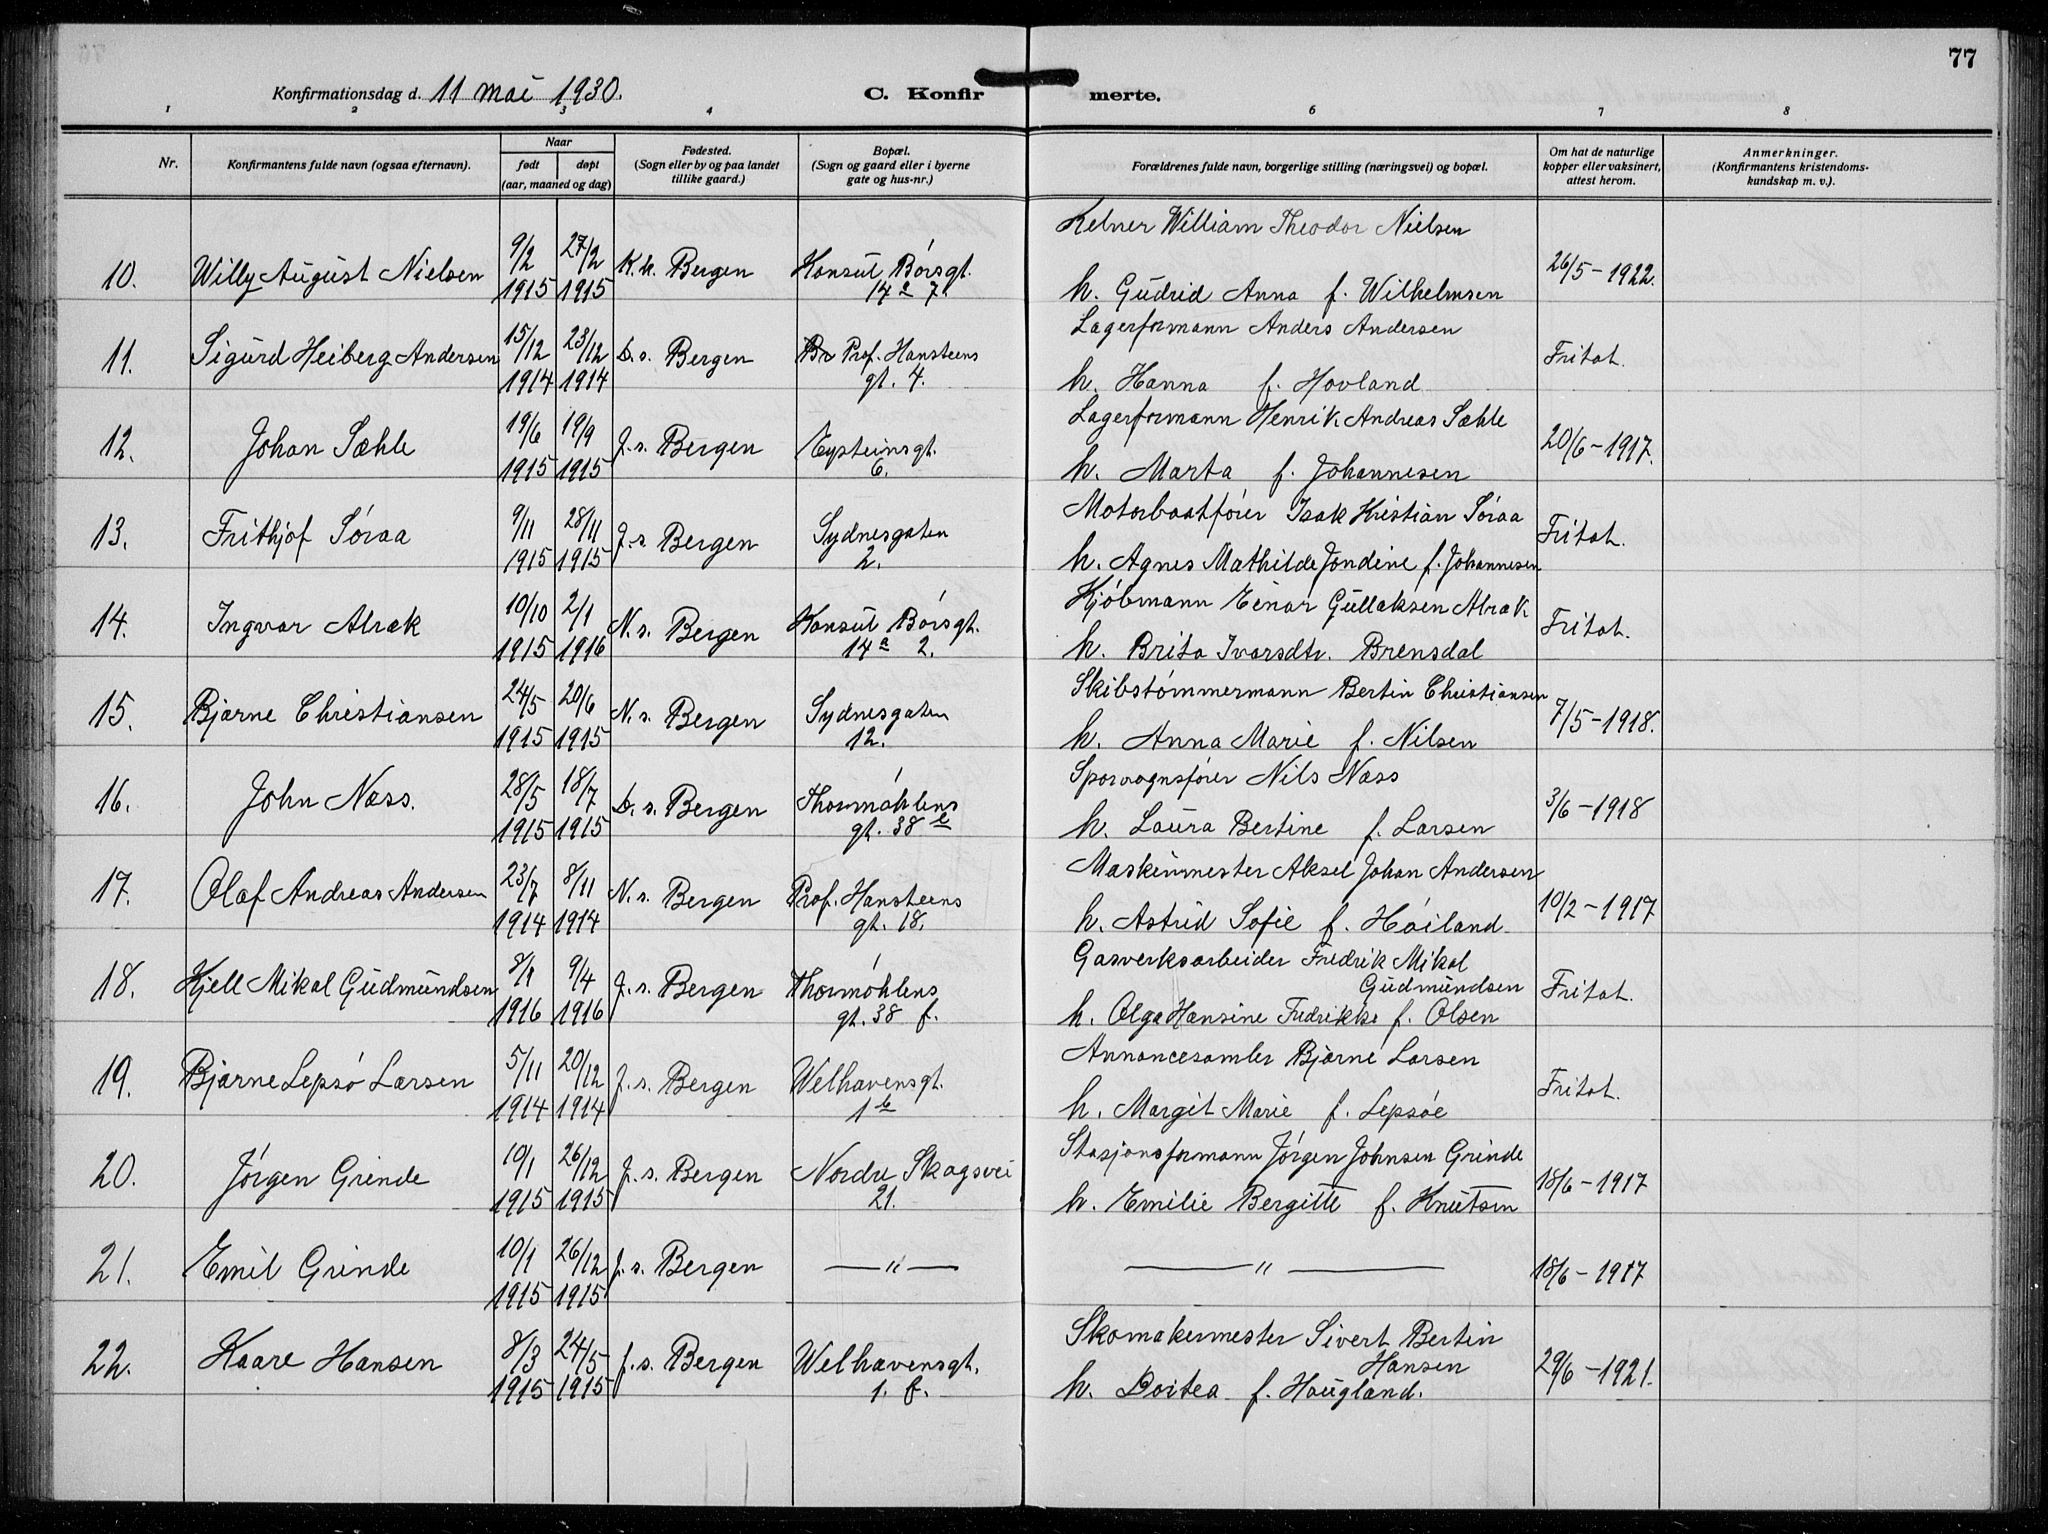 77
Konfirmationsdag d. 11 mai 1930.
C. Konfirmerte.
1 2 3 4 6 7 8
Nr.
Konfirmantens fulde navn (ogsaa efternavn).
Naar
født døpt
(aar, maaned og dag)
Fødested.
(Sogn eller by og paa landet
tillike gaard.)
Bopæl.
(Sogn og gaard eller i byerne
gate og hus-nr.)
Forældrenes fulde navn, borgerlige stilling (næringsvei) og bopæl.
Om hat de naturlige
kopper eller vaksinert,
attest herom.
Anmerkninger.
(Konfirmantens kristendoms-
kundskap m. v.).
Kelner William Theodor Nielsen
10. Willy August Nielsen 9/2 27/2 K.k. Bergen Konsul Børsgt. 26/5 - 1922.
1915 1915 14 a 7. h. Gudrid Anna f. Wilhelmsen
Lagerformann Anders Andersen
11. Sigurd Heiberg Andersen 15/12 23/12 D.s. Bergen Prof. Hansteens Fritat.
1914 1914 gt. 4. h. Hanna f. Hovland
Lagerformann Henrik Andreas Sæhle
12. Johan Sæhle 19/6 19/9 J.s. Bergen Eysteinsgt. 20/6 - 1917.
1915 1915 6. h. Marta f. Johannesen
Motorbaatfører Isak Kristian Søraa
13. Frithjof Søraa 9/11 28/11 J.s Bergen Sydnesgaten Fritat.
1915 1915 2. h. Agnes Mathilde Jondine f. Johannesen
Kjøbmann Einar Gullaksen Alræk
14. Ingvar Alræk 10/10 2/1 N.s. Bergen Konsul Børsgt. Fritat.
1915 1916 14 a 2. h. Brita Ivarsdtr. Brensdal
Skibstømmermann Bertin Christiansen
15. Bjarne Christiansen 24/5 20/6 N.s. Bergen Sydnesgaten 7/5 - 1918.
1915 1915 12. h. Anna Marie f. Nilsen
Sporvognsfører Nils Næss
16. John Næss. 28/5 18/7 D.s. Bergen Thormøhlens 3/6 - 1918
1915 1915 gt. 38 h. Laura Bertine f. Larsen
Maskinmester Aksel Johan Andersen
17. Olaf Andreas Andersen 23/7 8/11 N.s. Bergen Prof. Hansteens 10/2 - 1917
1914 1914 gt. 18. h. Astrid Sofie f. Høiland
Gasverksarbeider Fredrik Mikal
18. Kjell Mikal Gudmundsen 8/1 9/4 J.s. Bergen Thormøhlens Gudmundsen Fritat.
1916 1916 gt. 38 f. h. Olga Hansine Fredrikke f. Olsen
Annoncesamler Bjarne Larsen
19. Bjarne Lepsø Larsen 5/11 20/12 J.s. Bergen Welhavensgt. Fritat.
1914 1914 1 b h. Margit Marie f. Lepsøe
Stasjonsformann Jørgen Johnsen Grinde
20. Jørgen Grinde 10/1 26/12 J.s. Bergen Nordre Skogsvei 18/6 - 1917
1915 1915 21. h. Emilie Bergitte f. Knutsen
21. Emil Grinde 10/1 26/12 J.s. Bergen — " — — " — 18/6 - 1917
1915 1915
Skomakermester Sivert Bertin
22. Kaare Hansen 8/3 24/5 J.s. Bergen Welhavensgt. Hansen 29/6 - 1921.
1915 1915 1. f. h. Dortea f. Haugland.